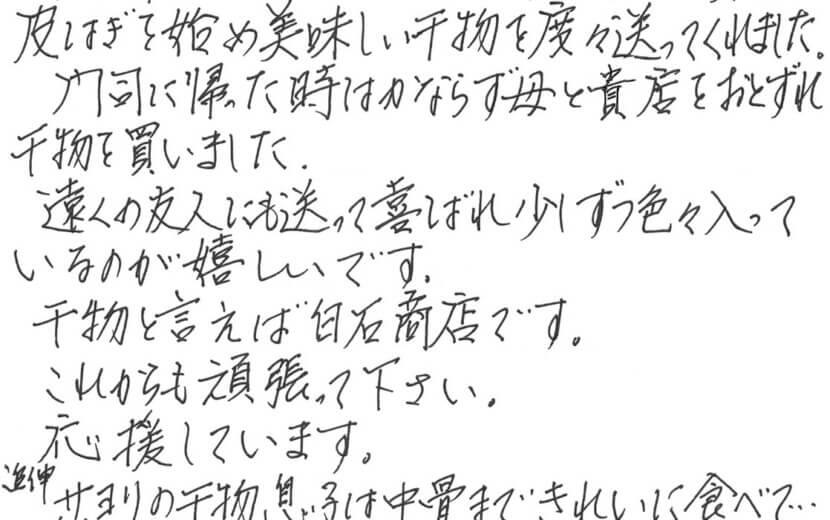 皮はぎを始め美味しい干物を度々送ってくれました。
門司に帰った時はかならず母と貴店をおとずれ
干物を買いました.
遠くの友人にも送って喜ばれ少しずつ色々入って
いるのが嬉しいです.
干物と言えば白石商店です。
これからも頑張って下さい.
応援しています。
追伸 サヨリの干物、息子は中骨まできれいに食べて…